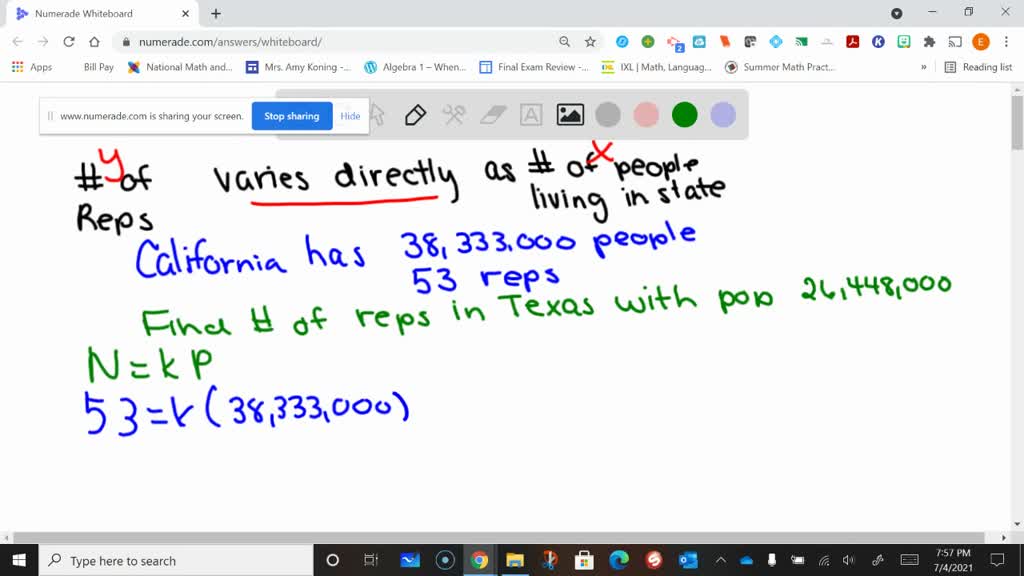 Numerade Whiteboard
numerade.com/answers/whiteboard/
Apps Bill Pay National Math and... Mrs. Amy Koning -... Algebra 1 – When... Final Exam Review -... IXL | Math, Languag... Summer Math Pract... » Reading list
www.numerade.com is sharing your screen. Stop sharing Hide
y x
# of varies directly as # of people
Reps living in state
California has 38,333,000 people
53 reps
Find # of reps in Texas with pop 26,448,000
N = k P
53 = k (38,333,000)
Type here to search
7:57 PM
7/4/2021